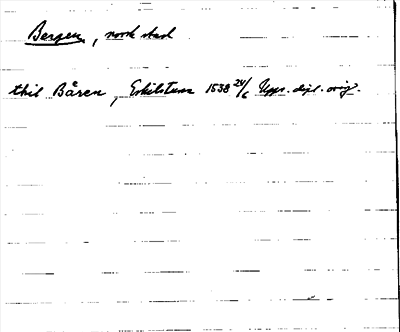 Bergen, norsk stad
thil Båren, Eskilstuna 1538 24/6 Upps. dipl. orig.